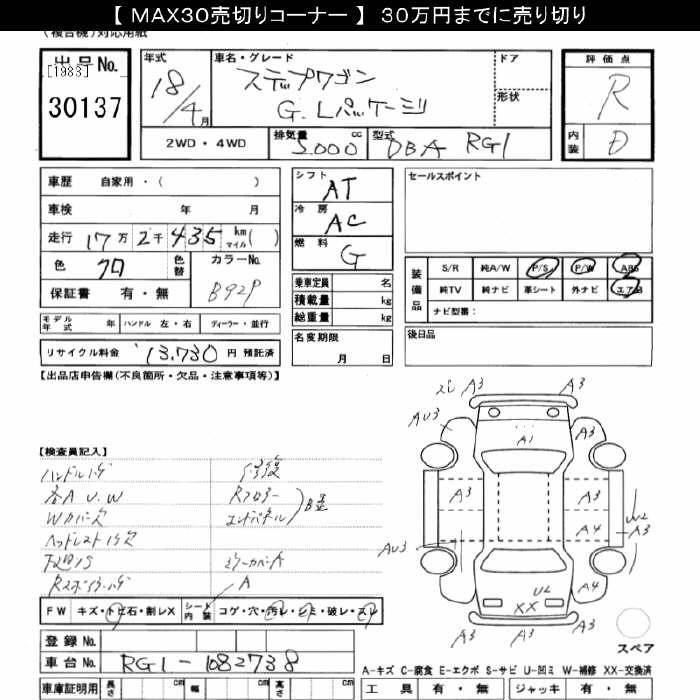 【 MAX30売切りコーナー 】 30万円までに売り切り
(複合機)対応用紙
出品No.
[1983]
30137
年式
18/4月
車名・グレード
ステップワゴン
G.Lパッケージ
ドア
形状
評価点
R
内装
D
2WD・4WD
排気量 cc
型式
DBA RG1
車歴 自家用・( )
車検 年 月
走行 17万2千435 km マイル( )
色 クロ
色替
カラーNo.
B92P
保証書 有・無
シフト
AT
冷房
AC
燃料
G
乗車定員 名
積載量 kg
総重量 kg
名変期限
月 日
セールスポイント
装備品
S/R 純A/W P/S P/W ABS
純TV 純ナビ 革シート 外ナビ エアB
ナビ型番:
後日品
モデル年式 年 ハンドル 左・右 ディーラー・並行
リサイクル料金 13,730 円 預託済
【出品店申告欄(不良箇所・欠品・注意事項等)】
【検査員記入】
修復
各A U.W
Rフロアー
Wカバーズ
エンドパネル
B歪
A
FW キズ・トビ石・割レX
シート内装
コゲ・穴・汚レ・シミ・破レ・スレ
登録No.
車台No. RG1-1082738
車庫証明用 長さ cm 幅 cm 高さ cm
A3
A3
AU3
A1
A3
A3
A3
A4
W2
A3
AU3
A4
U2
XX
A3
A3
スペア
A-キズ C-腐食 E-エクボ S-サビ U-凹ミ W-補修 XX-交換済
工具 有・無 ジャッキ 有・無